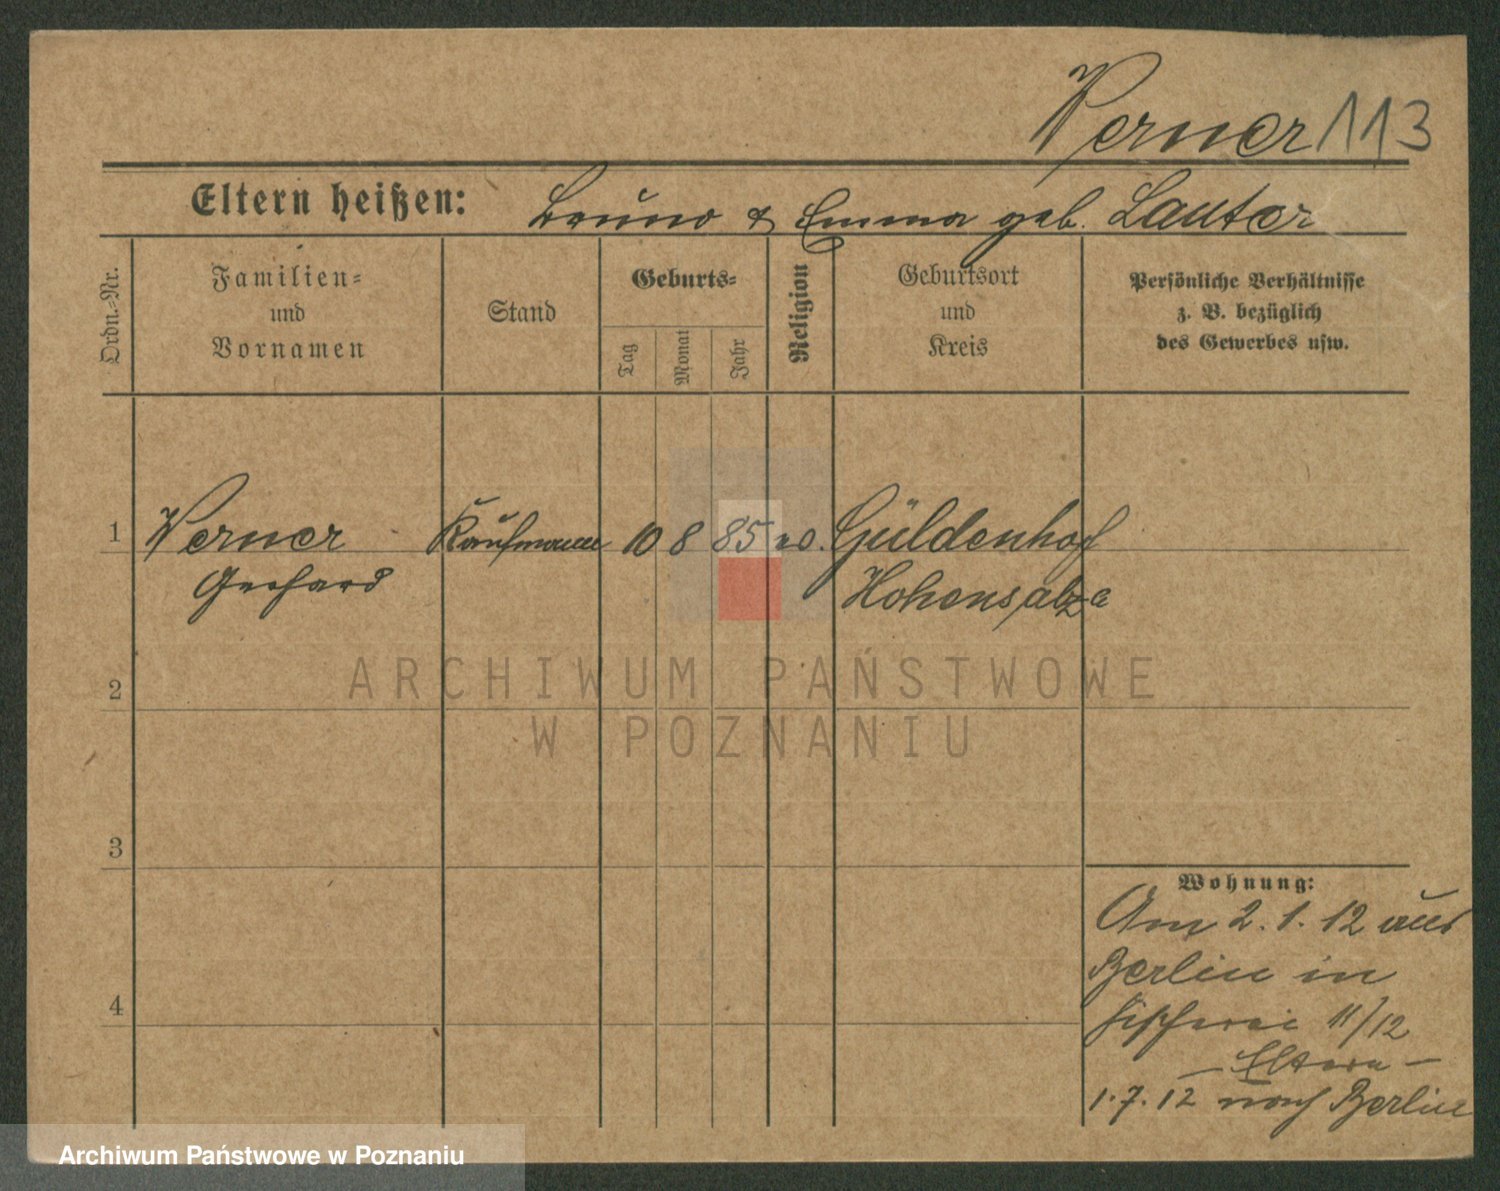 Werner 113
Eltern heißen: Bruno & Emma geb. Lauter
Ordn.-Nr.
Familien-
und
Vornamen
Stand
Geburts-
Tag
Monat
Jahr
Religion
Geburtsort
und
Kreis
Persönliche Verhältnisse
z. B. bezüglich
des Gewerbes usw.
1 Werner Kaufmann 10 8 85 ev. Güldenhof
Gerhard Hohensalza
2
3
4
Wohnung:
Am 2. 1. 12 aus
Berlin in
Fischerei 11/12
— Eltern —
1. 7. 12 nach Berlin
ARCHIWUM PAŃSTWOWE
W POZNANIU
Archiwum Państwowe w Poznaniu